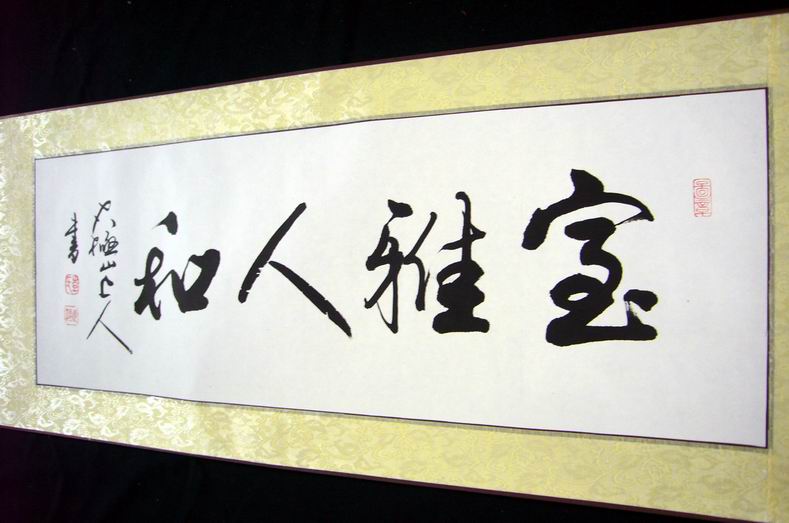 室雅人和
太極山上人
書